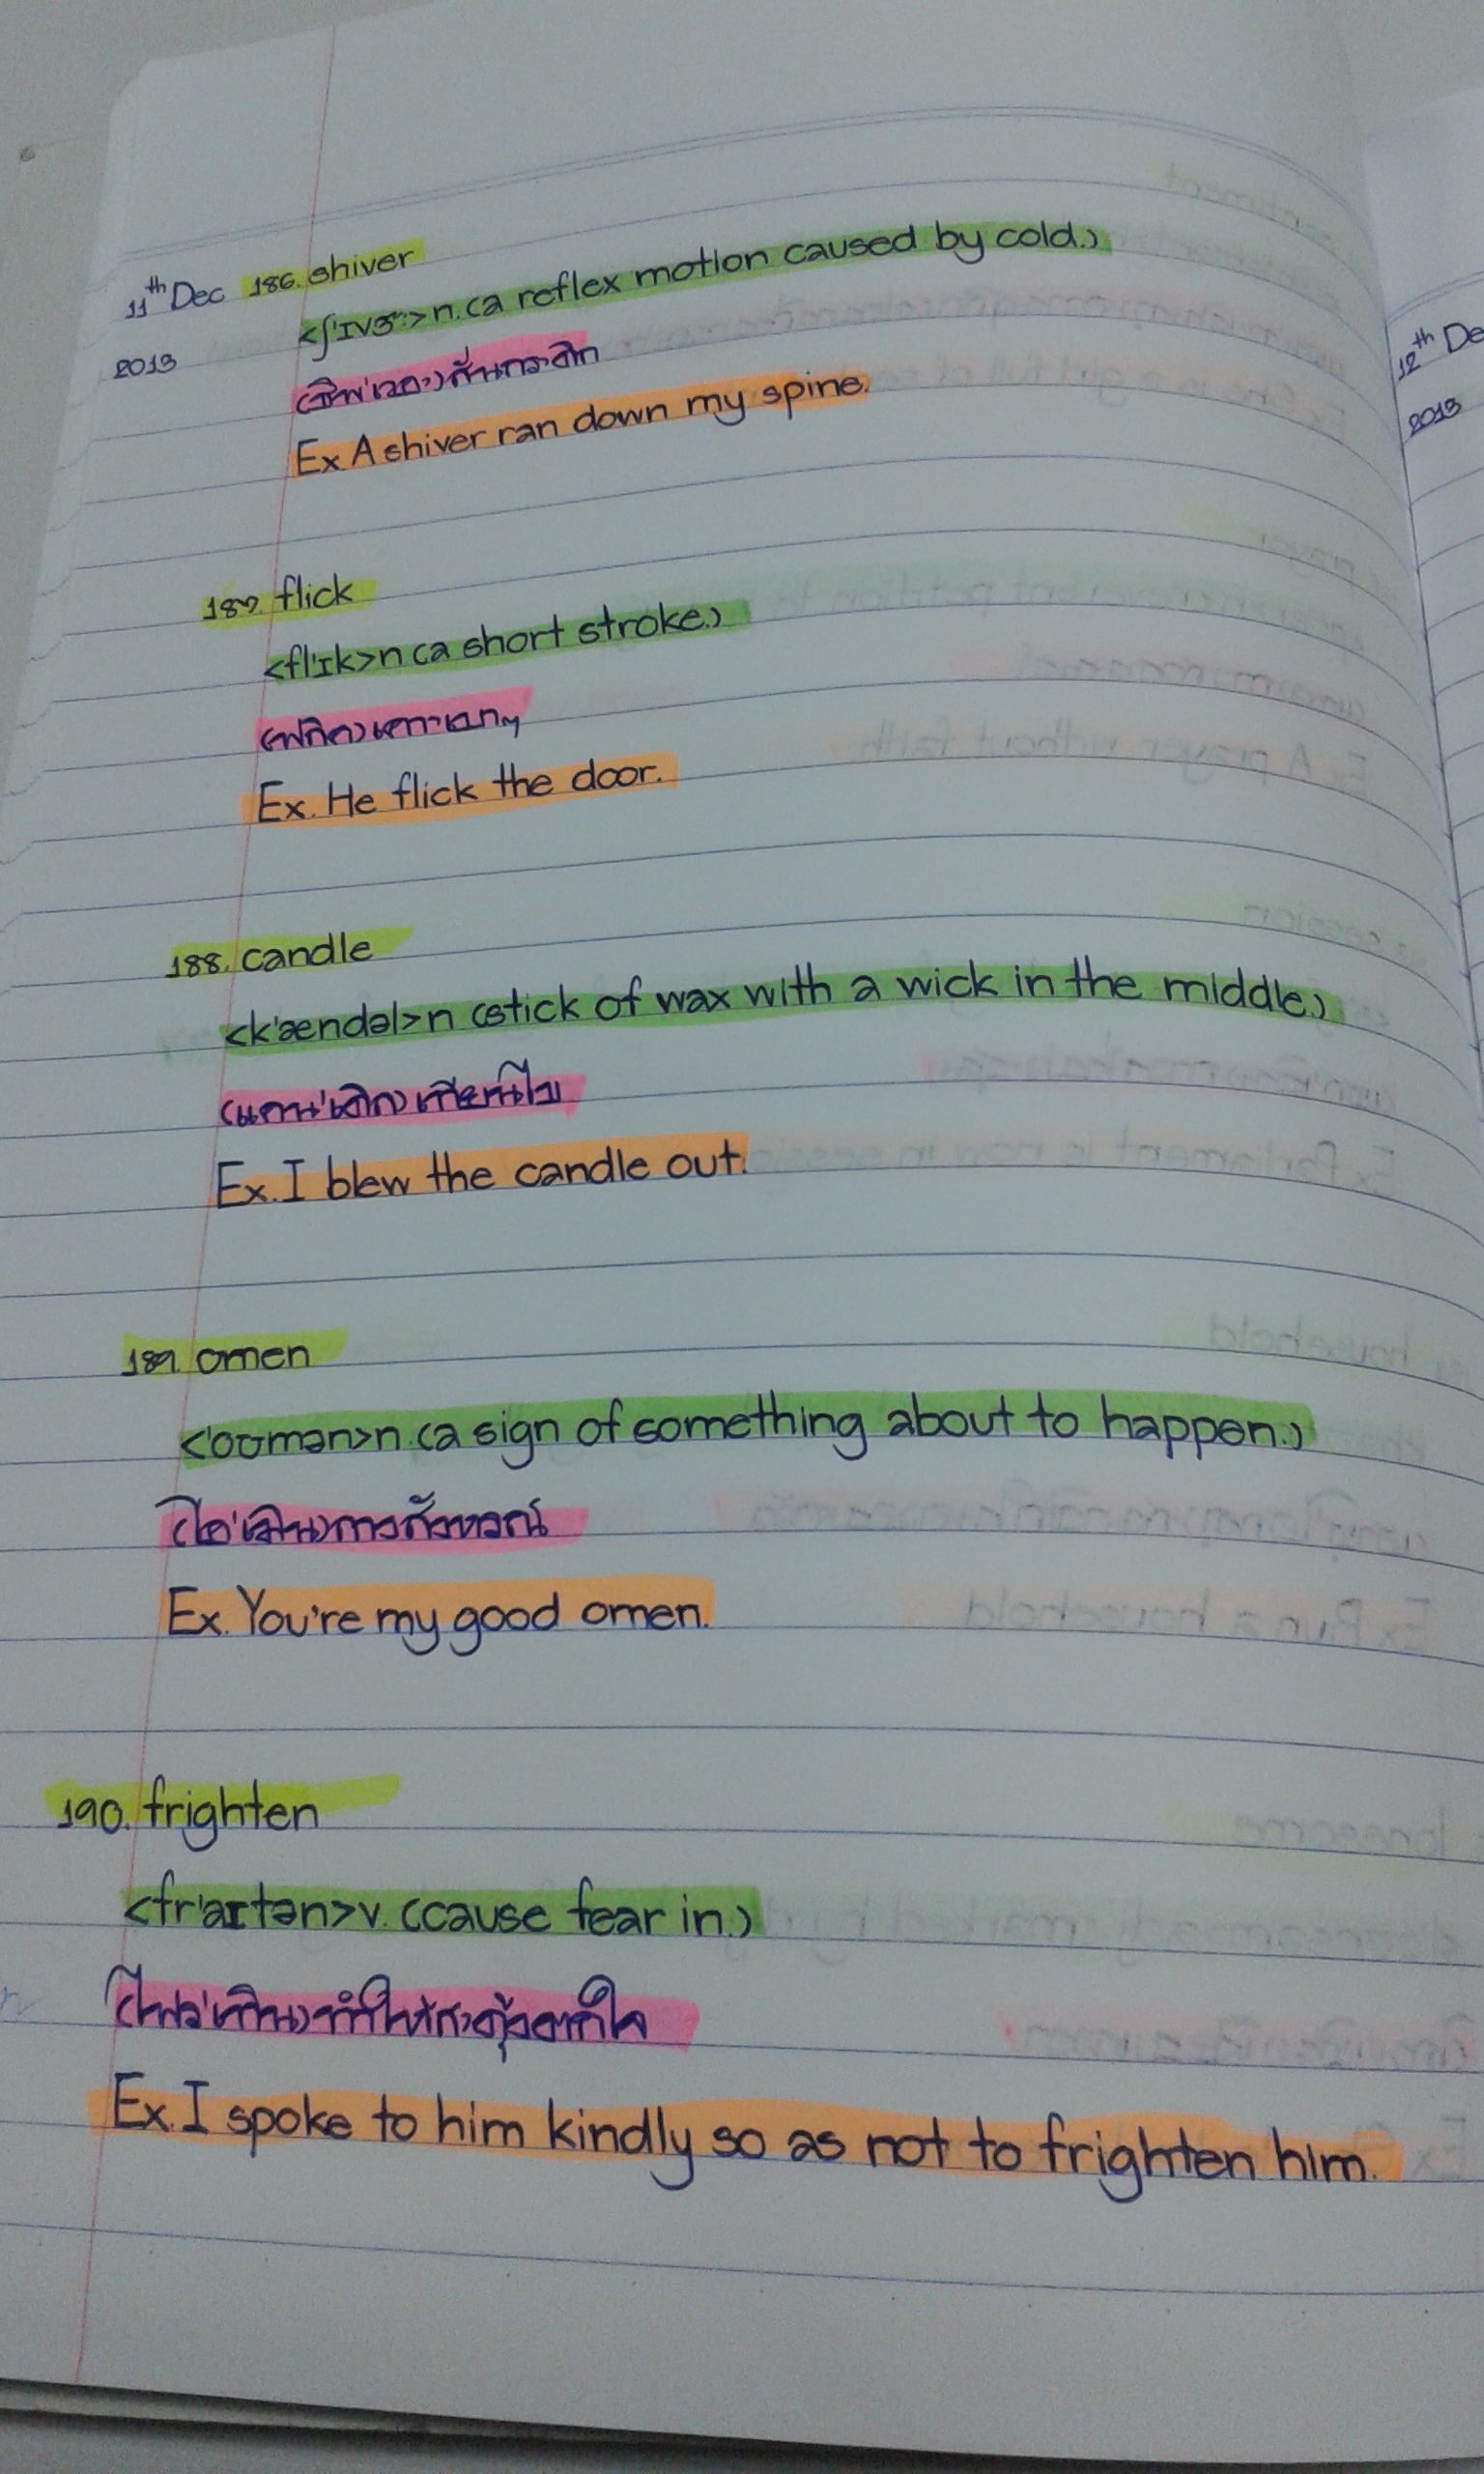 11th Dec 186. shiver
2013
<ʃ'ɪvɜ:>n. (a reflex motion caused by cold.)
(ชิฟ'เวอะ) สั่นกระตุก
Ex. A shiver ran down my spine.
187. flick
<fl'ɪk>n (a short stroke.)
(ฟลิค) เคาะเบาๆ
Ex. He flick the door.
188. candle
<k'ændəl>n (stick of wax with a wick in the middle.)
(แคน'เดิล) เทียนไข
Ex. I blew the candle out.
189. omen
<'oʊmən>n. (a sign of something about to happen.)
(โอ'เมิน) การสังหรณ์
Ex. You're my good omen.
190. frighten
<fr'aɪtən>v. (cause fear in.)
(ไฟร'เทิน) ทำให้สะดุ้งตกใจ
Ex. I spoke to him kindly so as not to frighten him.
12th De
2013